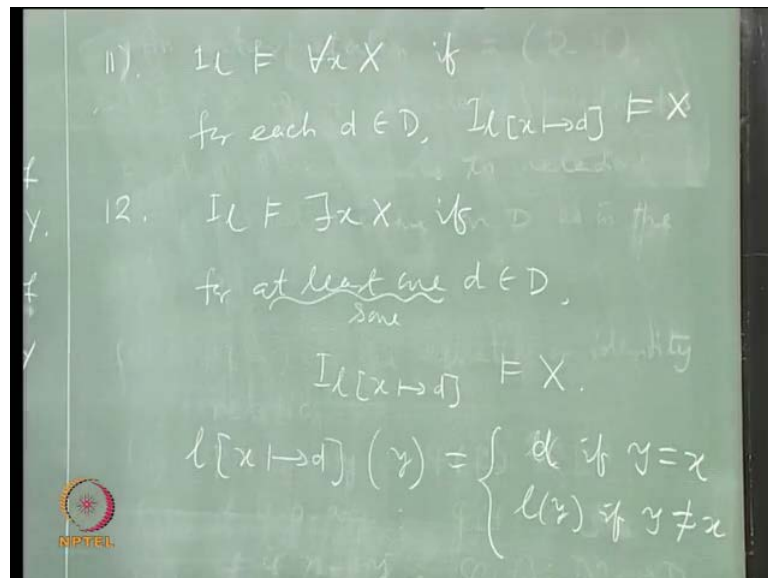 11). Iℓ ⊨ ∀x X if
for each d ∈ D, Iℓ[x↦d] ⊨ X
12. Iℓ ⊨ ∃x X if
for at least one d ∈ D,
some
Iℓ[x↦d] ⊨ X.
ℓ[x↦d] (y) = { d if y = x
ℓ(y) if y ≠ x
NPTEL